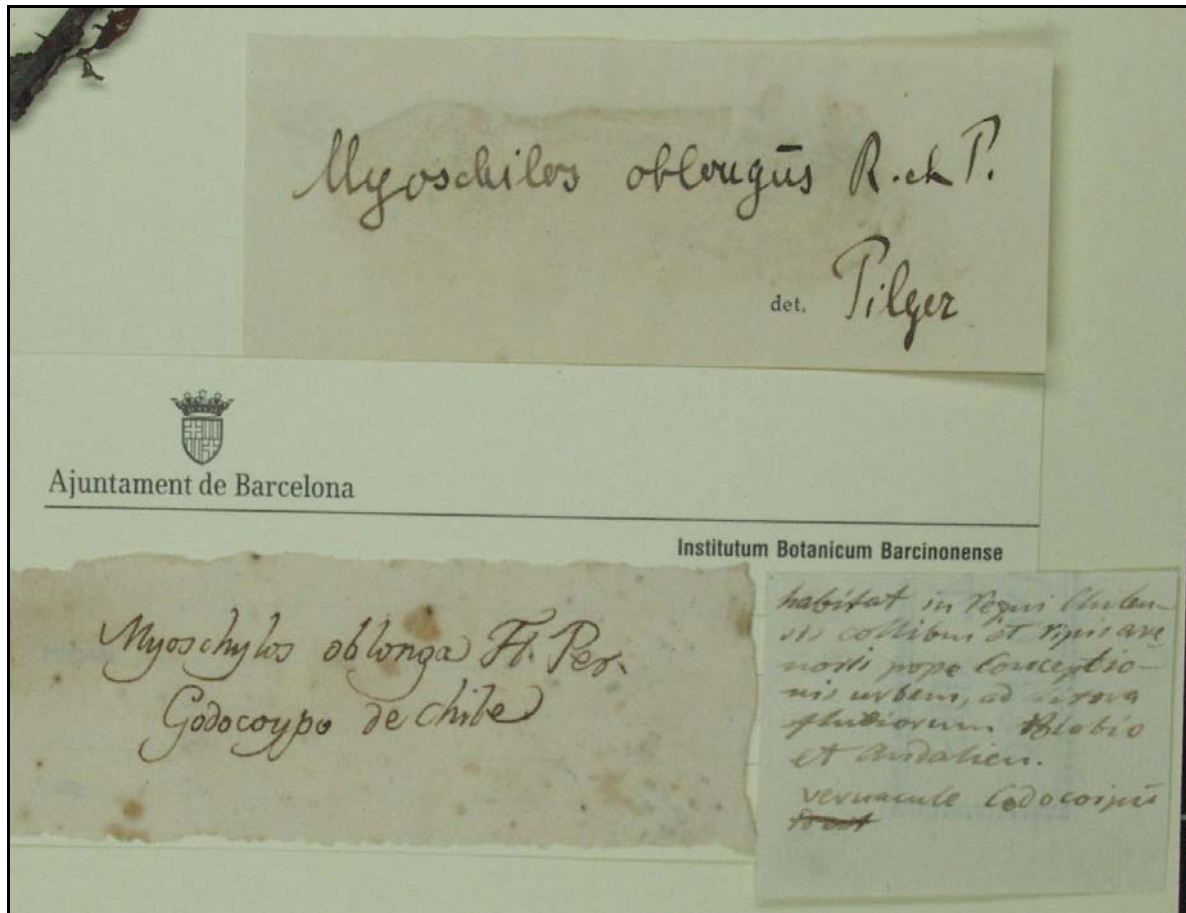 Myoschilos oblongus R. et P.
det. Pilger
Ajuntament de Barcelona
Institutum Botanicum Barcinonense
Myoschylos oblonga Fl. Per.
Godocoypo de Chile
habitat in regni Chilen-
sis collibus et ripis are
nosis prope Conceptio-
nis urbem, ad litora
fluviorum Biobio
et Andalien.
vernacule Codocoipu